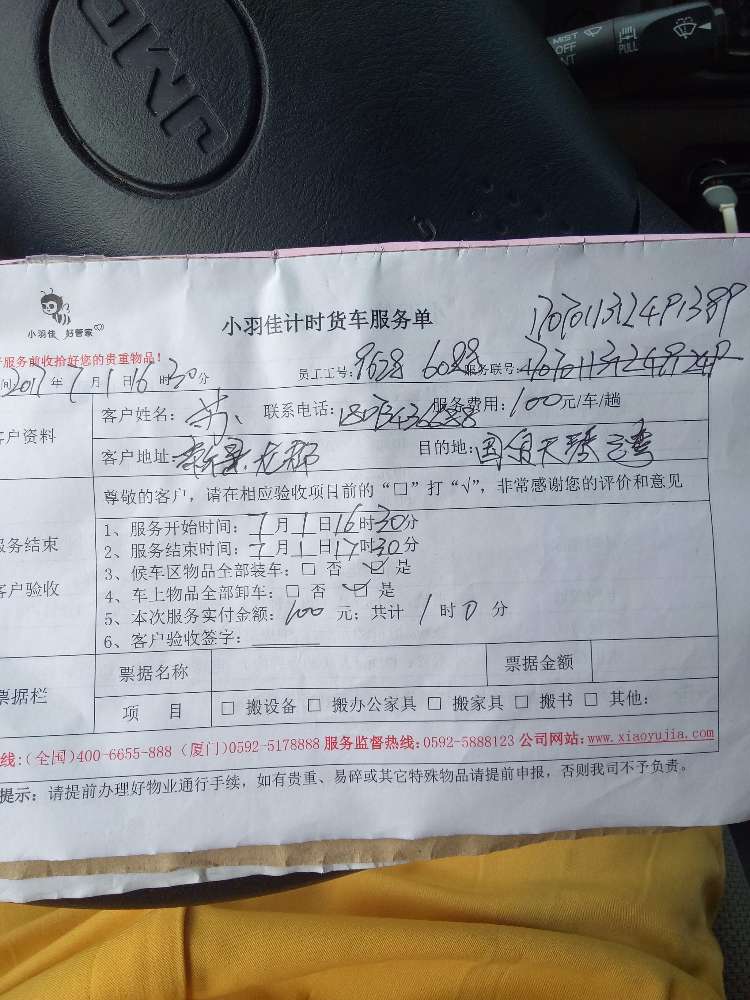 JMC
MIST
OFF
INT
PULL
小羽佳 好管家
小羽佳计时货车服务单
服务前收拾好您的贵重物品!
间2017年7月1日16时30分 员工工号:9628 6088 服务联号:
客户资料
客户姓名:苏 联系电话: 服务费用:100元/车/趟
客户地址: 目的地:国贸天琴湾
尊敬的客户,请在相应验收项目前的“口”打“√”,非常感谢您的评价和意见
服务结束
客户验收
1、服务开始时间:7月1日16时30分
2、服务结束时间:7月1日17时30分
3、候车区物品全部装车:□ 否 ☑ 是
4、车上物品全部卸车:□ 否 ☑ 是
5、本次服务实付金额:100 元;共计 1 时 0 分
6、客户验收签字:
票据栏
票据名称 票据金额
项 目 □ 搬设备 □ 搬办公家具 □ 搬家具 □ 搬书 □ 其他:
线:(全国)400-6655-888 (厦门)0592-5178888 服务监督热线:0592-5888123 公司网站:www.xiaoyujia.com
提示:请提前办理好物业通行手续,如有贵重、易碎或其它特殊物品请提前申报,否则我司不予负责。